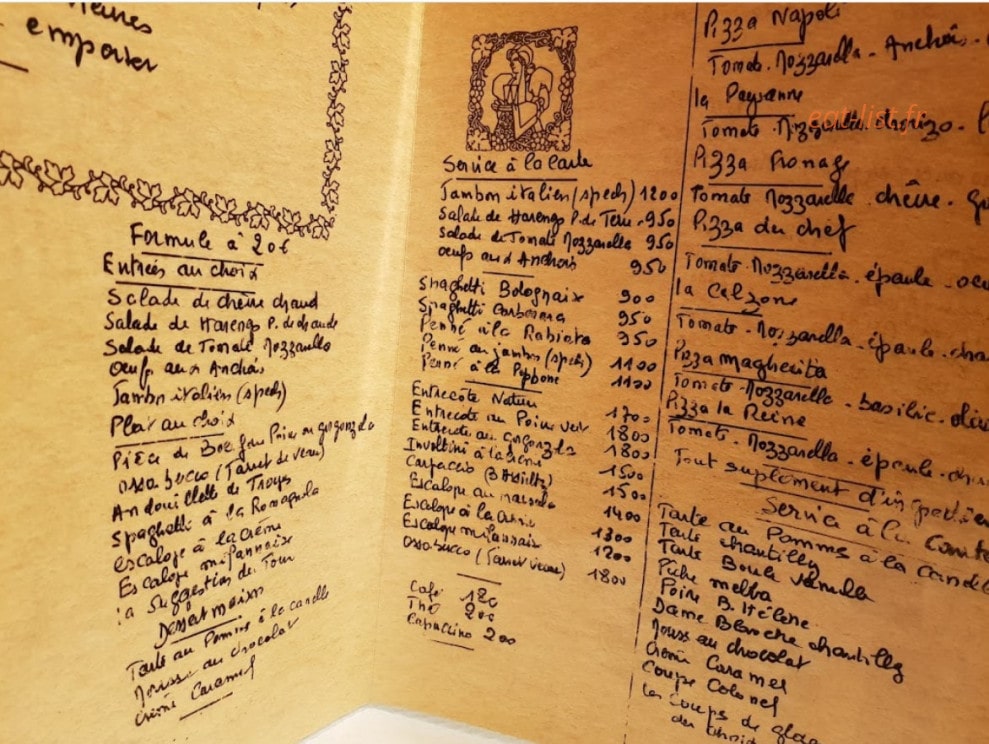 emporter
Formule à 20€
Entrées au choix
Salade de chèvre chaud
Salade de Harengs P. de chaude
Salade de Tomate Mozzarella
oeufs aux Anchois
Jambon italien (speck)
Plat au choix
Pièce de Boeuf au Poivre ou gorgonzola
ossobucco (Jarret de veau)
Andouillette de Troyes
Spaghetti à la Romagnola
escalope à la crème
Escalope milannaise
la Suggestion du Jour
Dessert maison
Tarte au Pommes à la canelle
Mousse au chocolat
Crème Caramel
Service à la carte
Jambon italien (speck) 1200
Salade de Harengs P. de Terre 950
Salade de Tomate Mozzarella 950
oeufs aux Anchois 950
Spaghetti Bolognaise 900
Spaghetti Carbonara 950
Penné à la Rabiata 950
Penné au jambon (speck) 1100
Penné à la 1100
Entrecôte Nature 1700
Entrecote au Poivre vert 1800
Entrecote au gorgonzola 1800
Involtini à la crème 1500
Carpaccio 1500
Escalope au marsala 1400
Escalope à la Crème
Escalope milannaise 1300
1200
ossobucco (Jarret veau) 1800
Café 180
Thé 200
Capuccino 200
Pizza Napoli
Tomate - Mozzarella - Anchois -
la Paysanne
Tomate - Mozzarella chorizo -
eatulist.fr
Pizza Fromage
Tomate Mozzarella chèvre -
Pizza du chef
Tomate - Mozzarella - épaule -
la Calzone
Tomate - Mozzarella - épaule -
Pizza Magherita
Tomate - Mozzarella - basilic -
Pizza la Reine
Tomate - Mozzarella - épaule -
Tout suplement
Service à la
Tarte au Pommes à la
Tarte chantilly
Tarte Boule Vanille
Pêche melba
Poire B. Hélène
Dame Blanche chantilly
Mouss au chocolat
Crème Caramel
Coupe Colonel
Les Coups de